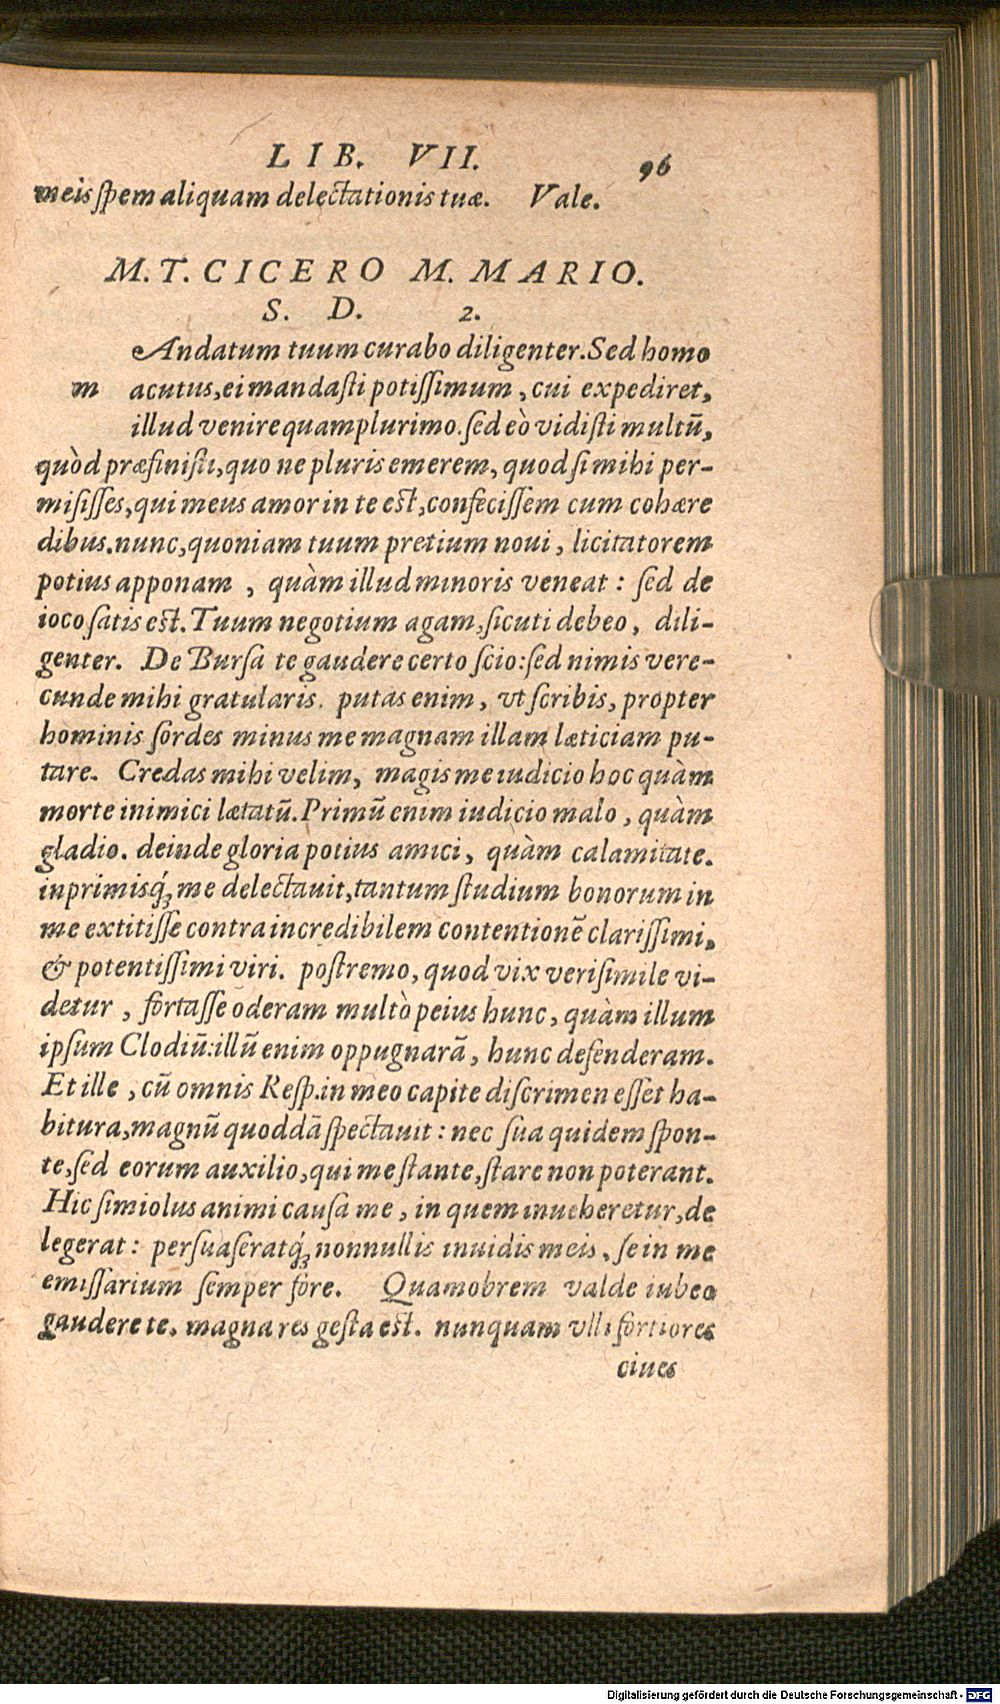 LIB. VII. 96
meis spem aliquam delectationis tuæ. Vale.
M. T. CICERO M. MARIO.
S. D. 2.
Andatum tuum curabo diligenter. Sed homo
m acutus, ei mandasti potissimum, cui expediret,
illud venire quamplurimo. sed eò vidisti multū,
quòd præfinisti, quo ne pluris emerem, quod si mihi per-
misisses, qui meus amor in te est, confecissem cum cohære
dibus. nunc, quoniam tuum pretium noui, licitatorem
potius apponam, quàm illud minoris veneat: sed de
ioco satis est. Tuum negotium agam, sicuti debeo, dili-
genter. De Bursa te gaudere certo scio: sed nimis vere-
cunde mihi gratularis. putas enim, vt scribis, propter
hominis sordes minus me magnam illam læticiam pu-
tare. Credas mihi velim, magis me iudicio hoc quàm
morte inimici lætatū. Primū enim iudicio malo, quàm
gladio. deinde gloria potius amici, quàm calamitate.
inprimisq́; me delectauit, tantum studium bonorum in
me extitisse contra incredibilem contentionē clarissimi,
& potentissimi viri. postremo, quod vix verisimile vi-
detur, fortasse oderam multò peius hunc, quàm illum
ipsum Clodiū: illū enim oppugnarā, hunc defenderam.
Et ille, cū omnis Resp. in meo capite discrimen esset ha-
bitura, magnū quoddā spectauit: nec sua quidem spon-
te, sed eorum auxilio, qui me stante, stare non poterant.
Hic simiolus animi causa me, in quem inueheretur, de
legerat: persuaseratq́; nonnullis inuidis meis, se in me
emissarium semper fore. Quamobrem valde iubeo
gaudere te. magna res gesta est. nunquam vlli fortiores
ciues
Digitalisierung gefördert durch die Deutsche Forschungsgemeinschaft - DFG